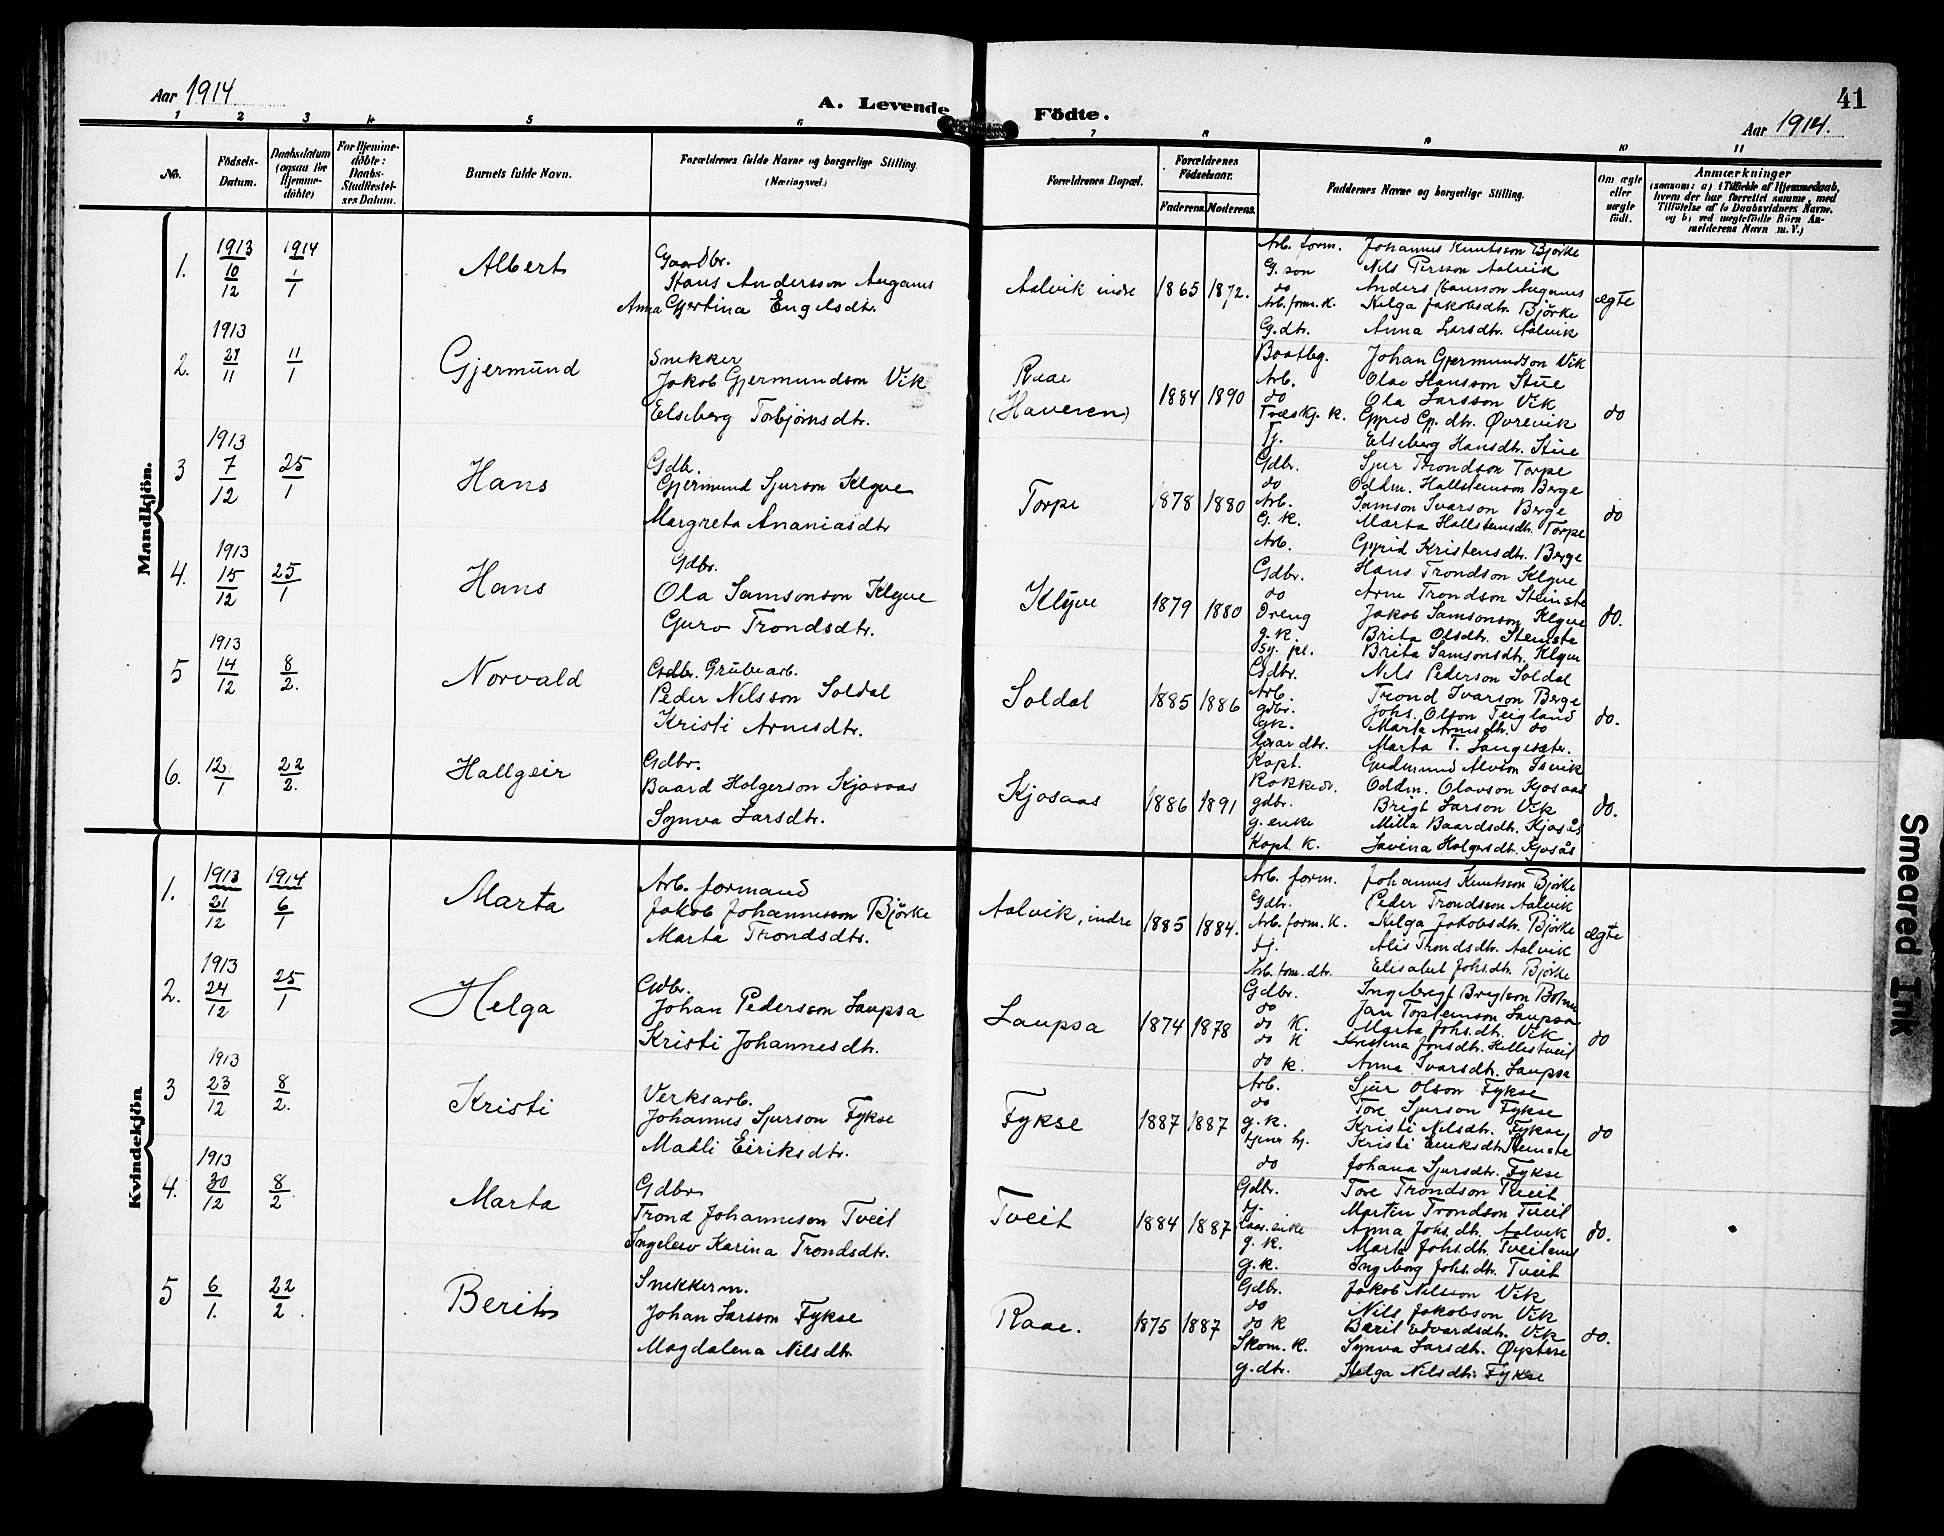 Aar 1914
A. Levende Födte.
41
Aar 1914.
1 2 3 4 5 6 7 8 9 10 11
No.
Födsels-Datum.
Daabsdatum (ogsaa for Hjemmedöbte)
For Hjemmedöbte: Daabs-Stadfæstelses Datum.
Barnets fulde Navn.
Forældrenes fulde Navne og borgerlige Stilling.
(Næringsvei.)
Forældrenes Bopæl.
Forældrenes Födselsaar.
Faderens. Moderens.
Faddernes Navne og borgerlige Stilling.
Om ægte eller uægte födt.
Anmærkninger
(saasom: a) i Tilfælde af Hjemmedaab,
hvem der har forrettet samme, med
Tilföielse af to Daabsvidners Navne.
og b) ved uægtefödte Börn An-
melderens Navn m. V.)
Mandkjön.
1. 1913 10/12 1914 1/1 Albert
Gaardbr.
Hans Andersson Auganes
Anna Gjertina Engelsdtr.
Aalvik indre 1865 1872. ægte
Arb. form. Johannes Knutsson Bjørke
G. søn Nils Persson Aalvik
do Anders Hansson Auganes
Arb. form. K. Helga Jakobsdtr. Bjørke
G. dtr. Anna Larsdtr. Aalvik
2. 1913 11/1 Gjermund
Snekker
Jakob Gjermundson Vik
Elseberg Torbjørnsdtr.
Raae
(Haveren) 1884 1890 do
Baatbg. Johan Gjermundson Vik
Arb. Olav Hansson Stue
do Ola Larsson Vik
Træskj. K. Gyrid Gj. dtr. Øvrevik
Tj. Elseberg Hansdtr. Stue
3 1913 7/12 25/1 Hans
Gdbr.
Gjermund Sjurson Klyve
Margreta Ananiasdtr
Torpe 1878 1880 do
Gdbr. Sjur Trondson Torpe
do Oddm. Hallsteinson Berge
Arb. Samson Ivarson Berge
G. K. Marta Hallsteinsdtr. Torpe
Arb. Gyrid Kristensdtr. Berge
4. 1913 15/12 25/1 Hans
Gdbr.
Ola Samsonson Klyve
Guro Trondsdtr.
Klyve 1879 1880 do.
Gdbr. Hans Trondson Klyve
do Arne Trondson Steinste
Dreng Jakob Samsonson Klyve
g. K. Brita Olsdtr. Steinstø
Sy. pi. Brita Samsonsdtr. Klyve
5 1913 14/12 8/2. Norvald
Gdbr. Grubearb.
Peder Nilsson Soldal
Kristi Arnesdtr.
Soldal 1885 1886 do.
Gdbr. Nils Pederson Soldal
Arb. Trond Ivarson Berge
gdbr. Johs. Olson Teigland
gk. Marta Arnesdtr. do
Marta T. Langesæter.
6. 12/1 22/2. Hallgeir
Gdbr.
Baard Holgerson Kjosaas
Synva Larsdtr.
Kjosaas 1886 1891 do.
Kapt. Gudmund
Oddm. Olavson Kjosaas
gdbr. Brigt Larson Vik
g. enke Milla Baardsdtr. Kjosås
Kapt. K. Lavina Holgersdtr. Kjosås
Kvindekjön
1. 1913 21/12 1914 6/1 Marta
Arb. formand
Jakob Johannesson Bjørke
Marta Trondsdtr.
Aalvik, indre 1885 1884. ægte
Arb. form. Johannes Knutsson Bjørke
Gdbr. Peder Trondsson Aalvik
Arb. form. K. Helga Jakobsdtr. Bjørke
tj. Alis Trondsdtr. Aalvik
Arb. form. dtr. Elisabet Johs.dtr. Bjørke
2. 1913 24/12 25/1 Helga
Gdbr.
Johan Pederson Laupsa
Kristi Johannesdtr.
Laupsa 1874 1878 do
Gdbr. Ingebregt Brigtson
do Jan Torsteinson Laupsa
do K. Marta Johs.dtr. Vik
do K Kristina Jonsdtr. Hellestveit
do K. Anna Ivarsdtr. Laupsa
3 1913 23/12 8/2. Kristi
Verksarb.
Johannes Sjurson Fykse
Madli Eiriksdtr.
Fykse 1887 1887 do
Arb. Sjur Olson Fykse
do Tore Sjurson Fykse
g. K. Kristi Nilsdtr. Fykse
Kristi Eiriksdtr. Steinstø
do Johana Sjursdtr. Fykse
4. 1913 30/12 8/2 Marta
Gdbr
Trond Johanneson Tveit
Ingelev Karina Trondsdtr.
Tveit 1884 1887 do.
Gdbr. Tore Trondson Tveit
tj. Martin Trondson Tveit
Anna Johs.dtr. Aalvik
g. K. Marta Johs.dtr. Tveitenes
g. K. Ingeborg Johs.dtr. Tveit
5 6/1. 22/2 Berit
Snekkerm.
Johan Larsson Fykse
Magdalena Nilsdtr
Raae. 1875 1887 do.
Gdbr. Jakob Nilsson Vik
do Nils Jakobson Vik
do K Berit Edvardsdtr. Vik
Skom. K. Synva Larsdtr. Øystese
g. dtr. Helga Nilsdtr. Fykse
Smeared Ink